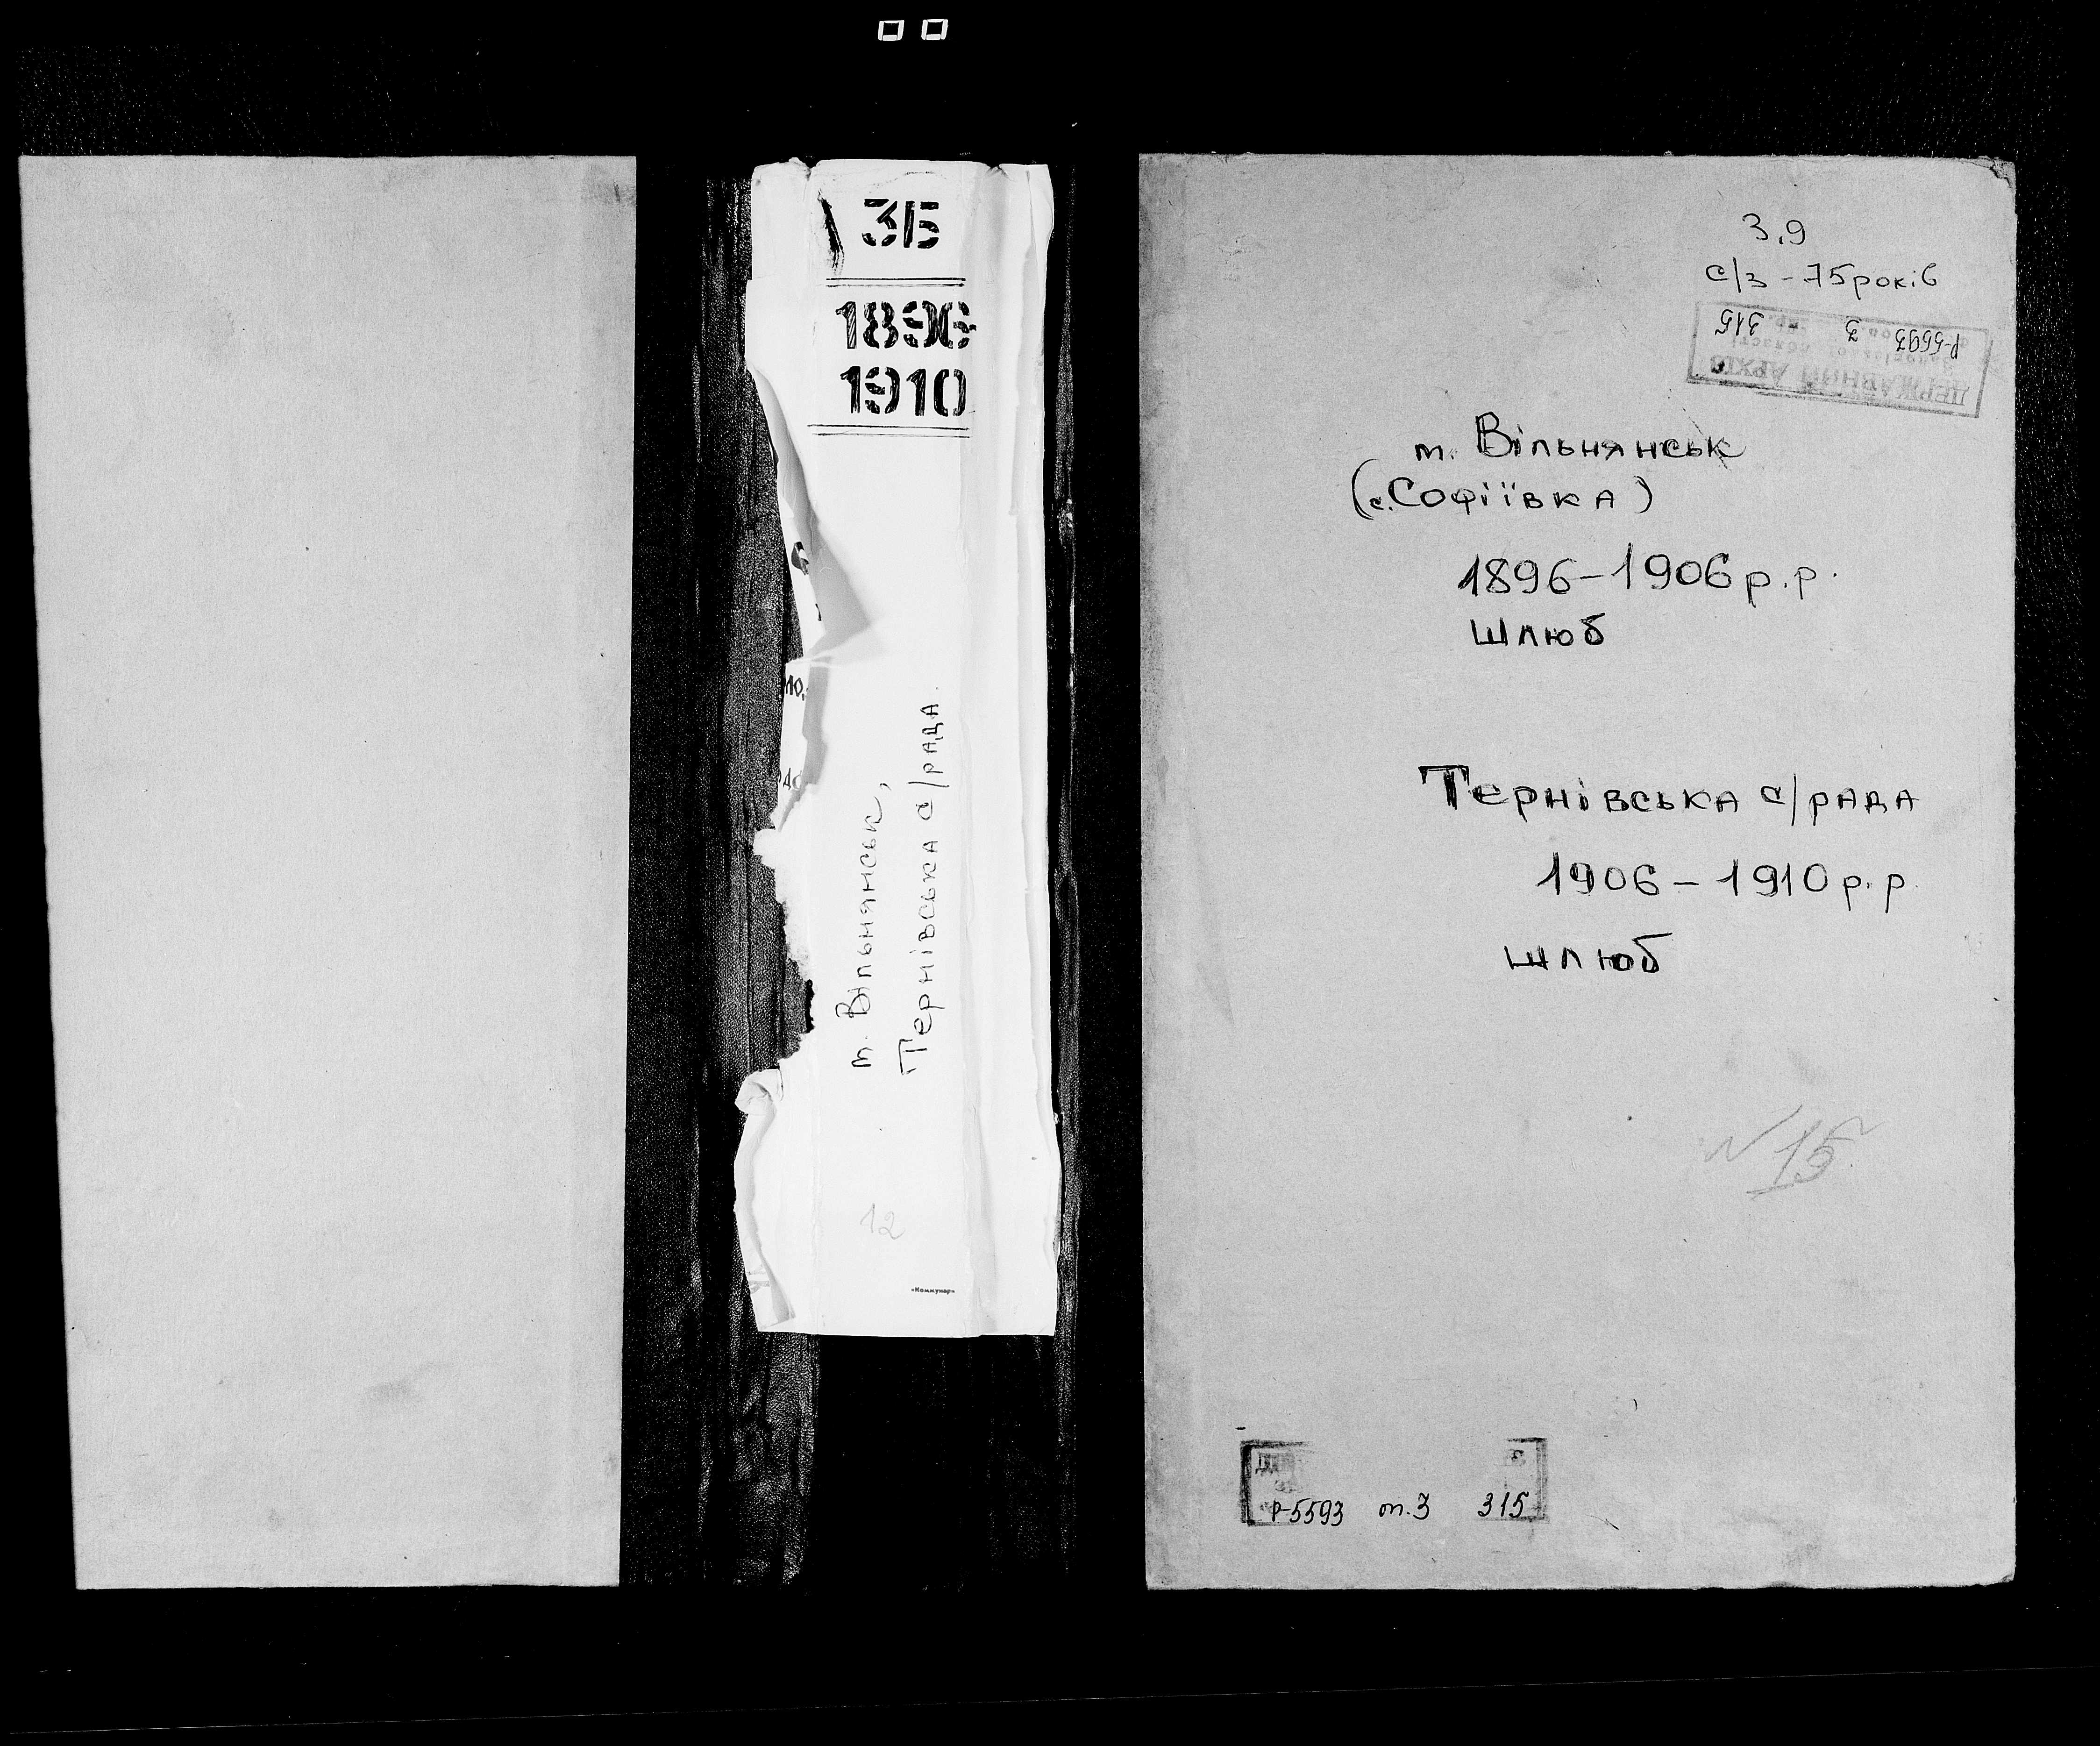 3Б
1896
1910
т. Вільнянськ,
Тернівська с/рада.
12
«Коммунар»
3.9
с/з - 75 років
Р-5593 3 315
ДЕРЖАВНИЙ АРХІВ
т. Вільнянськ
(с. Софіївка)
1896-1906 р.р.
шлюб
Тернівська с/рада
1906-1910 р.р.
шлюб
N 15
Р-5593 оп.3 315